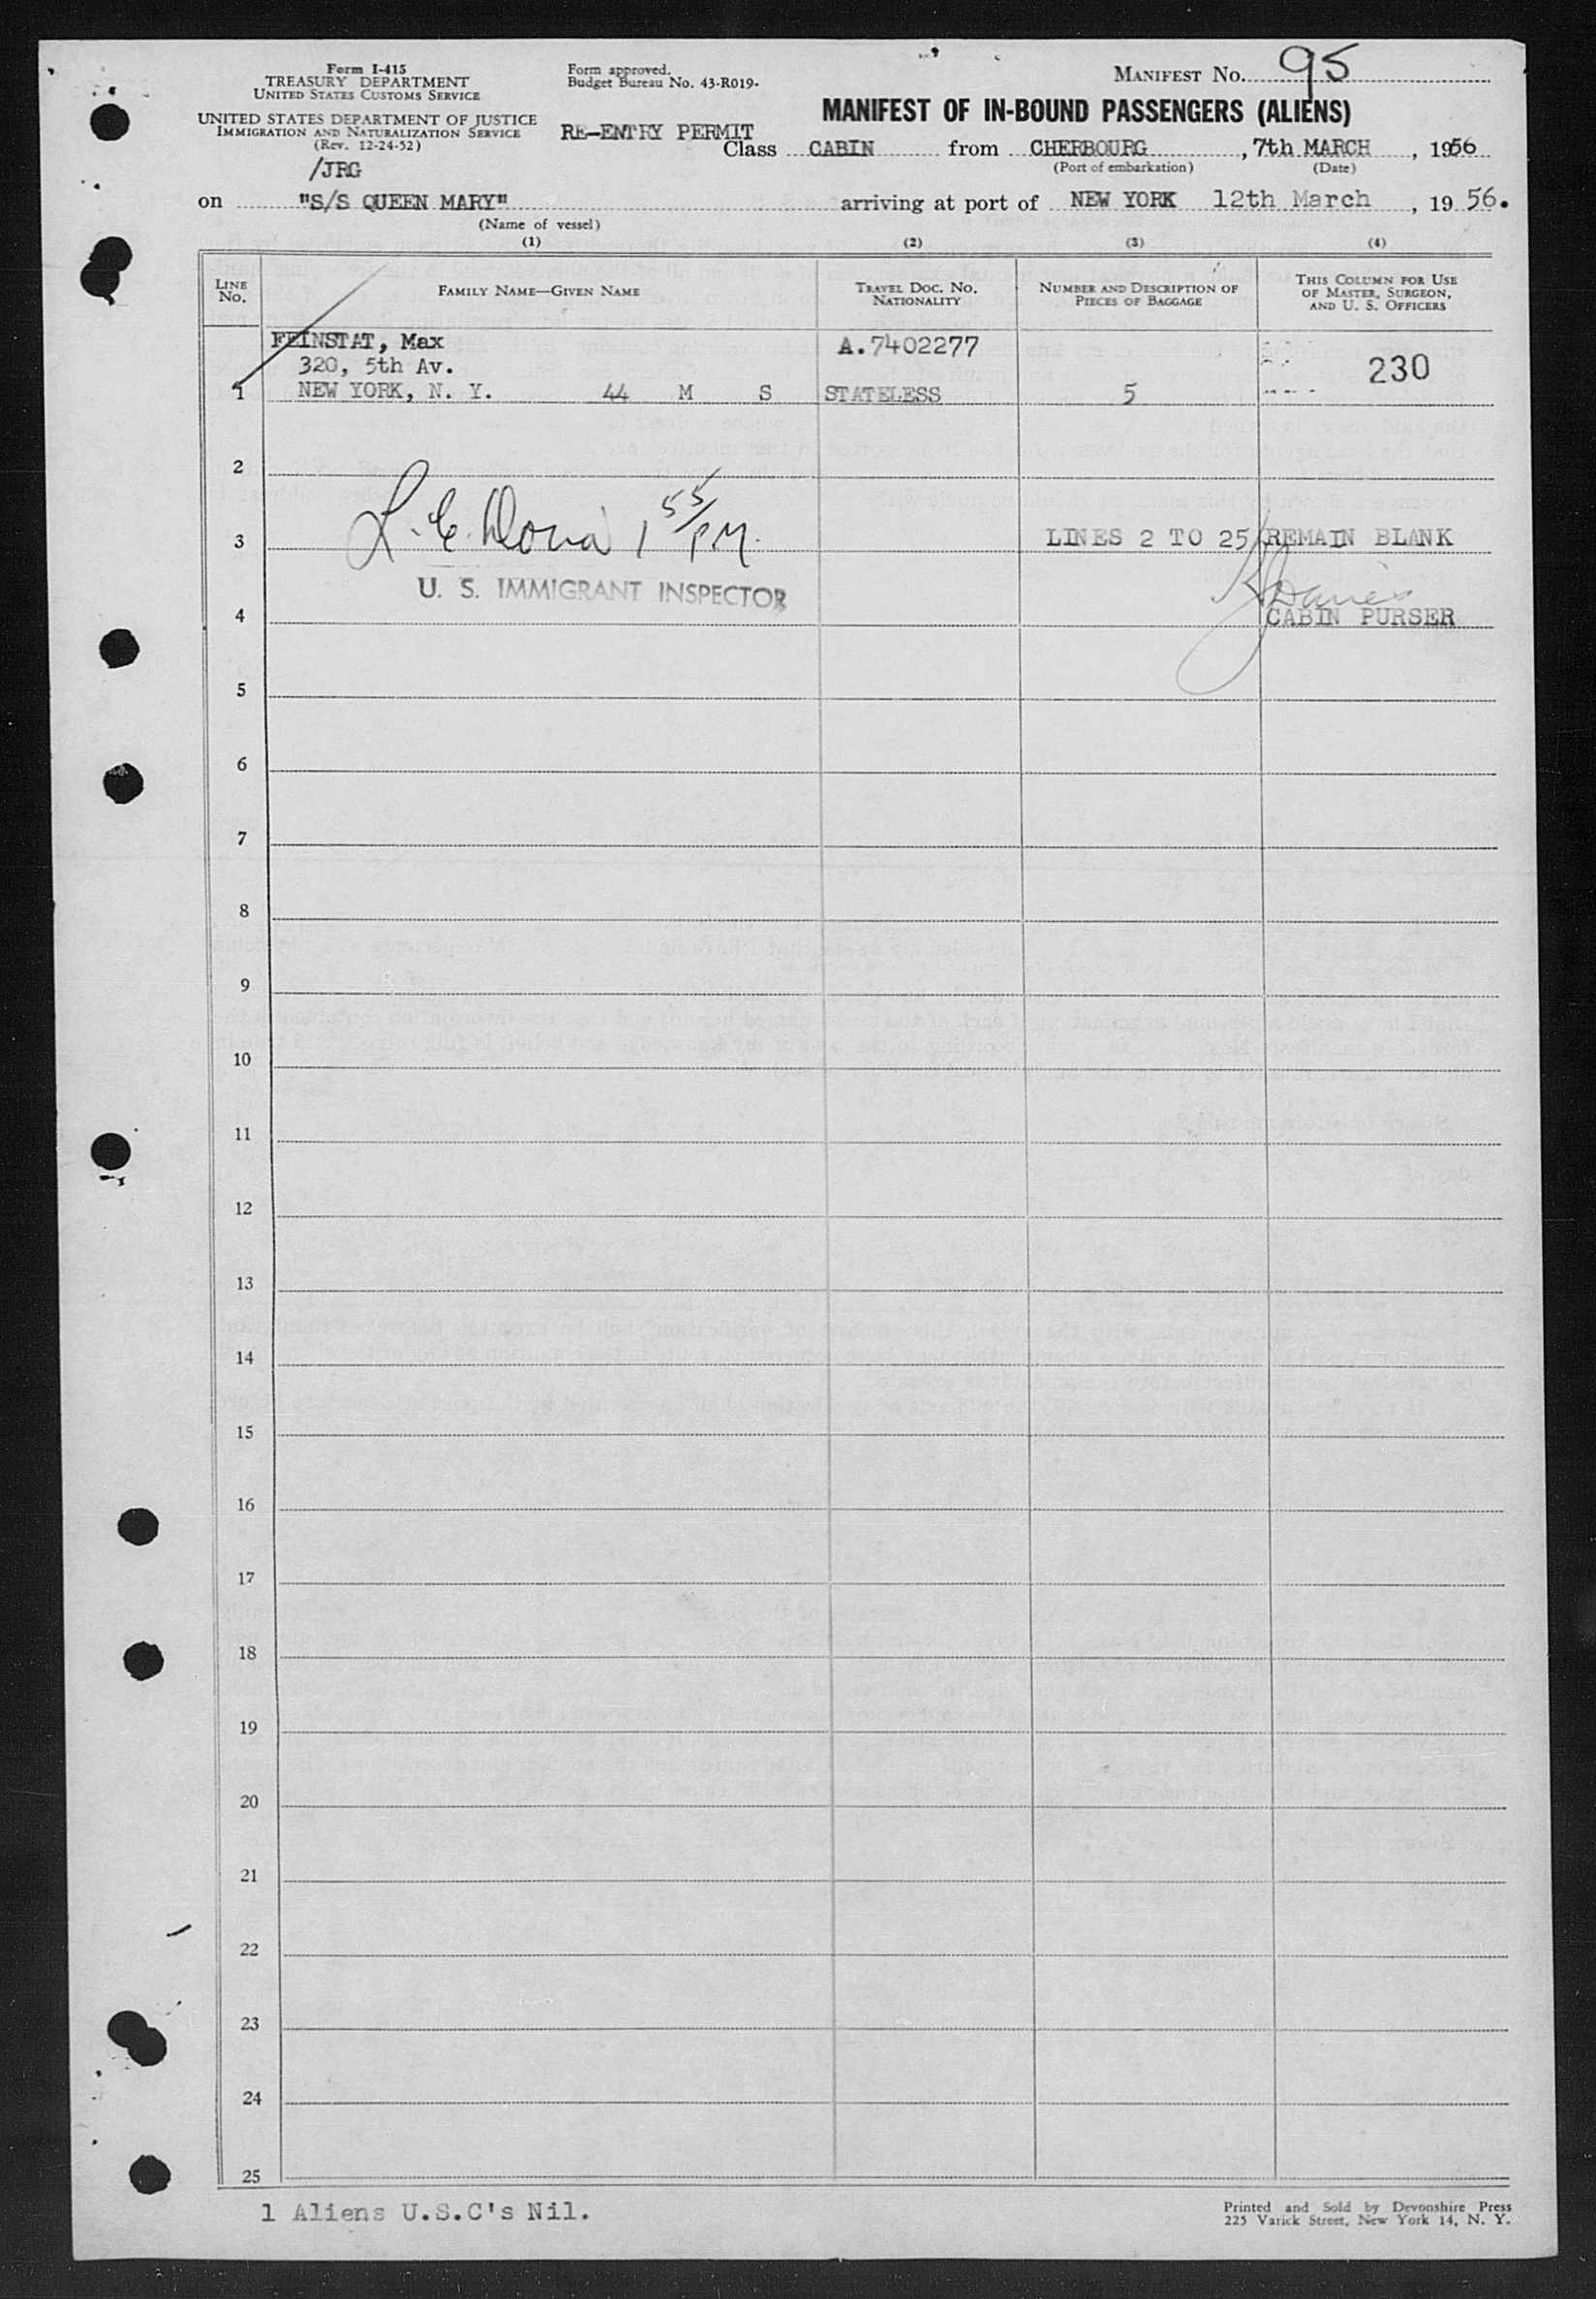 Form I-415
TREASURY DEPARTMENT
UNITED STATES CUSTOMS SERVICE
UNITED STATES DEPARTMENT OF JUSTICE
IMMIGRATION AND NATURALIZATION SERVICE
(Rev. 12-24-52)
/JRG
Form approved.
Budget Bureau No. 43-R019-
RE-ENTRY PERMIT
MANIFEST No. 95
MANIFEST OF IN-BOUND PASSENGERS (ALIENS)
Class CABIN from CHERBOURG, 7th MARCH, 1956
(Port of embarkation) (Date)
on "S/S QUEEN MARY" arriving at port of NEW YORK 12th March, 19 56.
(Name of vessel)
(1) (2) (3) (4)
LINE No. FAMILY NAME—GIVEN NAME TRAVEL DOC. No. NATIONALITY NUMBER AND DESCRIPTION OF PIECES OF BAGGAGE THIS COLUMN FOR USE OF MASTER, SURGEON, AND U. S. OFFICERS
FEINSTAT, Max A.7402277
320, 5th Av. 230
1 NEW YORK, N. Y. 44 M S STATELESS 5
2
L. C. 1 55/PM.
3 LINES 2 TO 25 REMAIN BLANK
U. S. IMMIGRANT INSPECTOR
Davies
4 CABIN PURSER
5
6
7
8
9
10
11
12
13
14
15
16
17
18
19
20
21
22
23
24
25
1 Aliens U.S.C's Nil.
Printed and Sold by Devonshire Press
225 Varick Street, New York 14, N. Y.